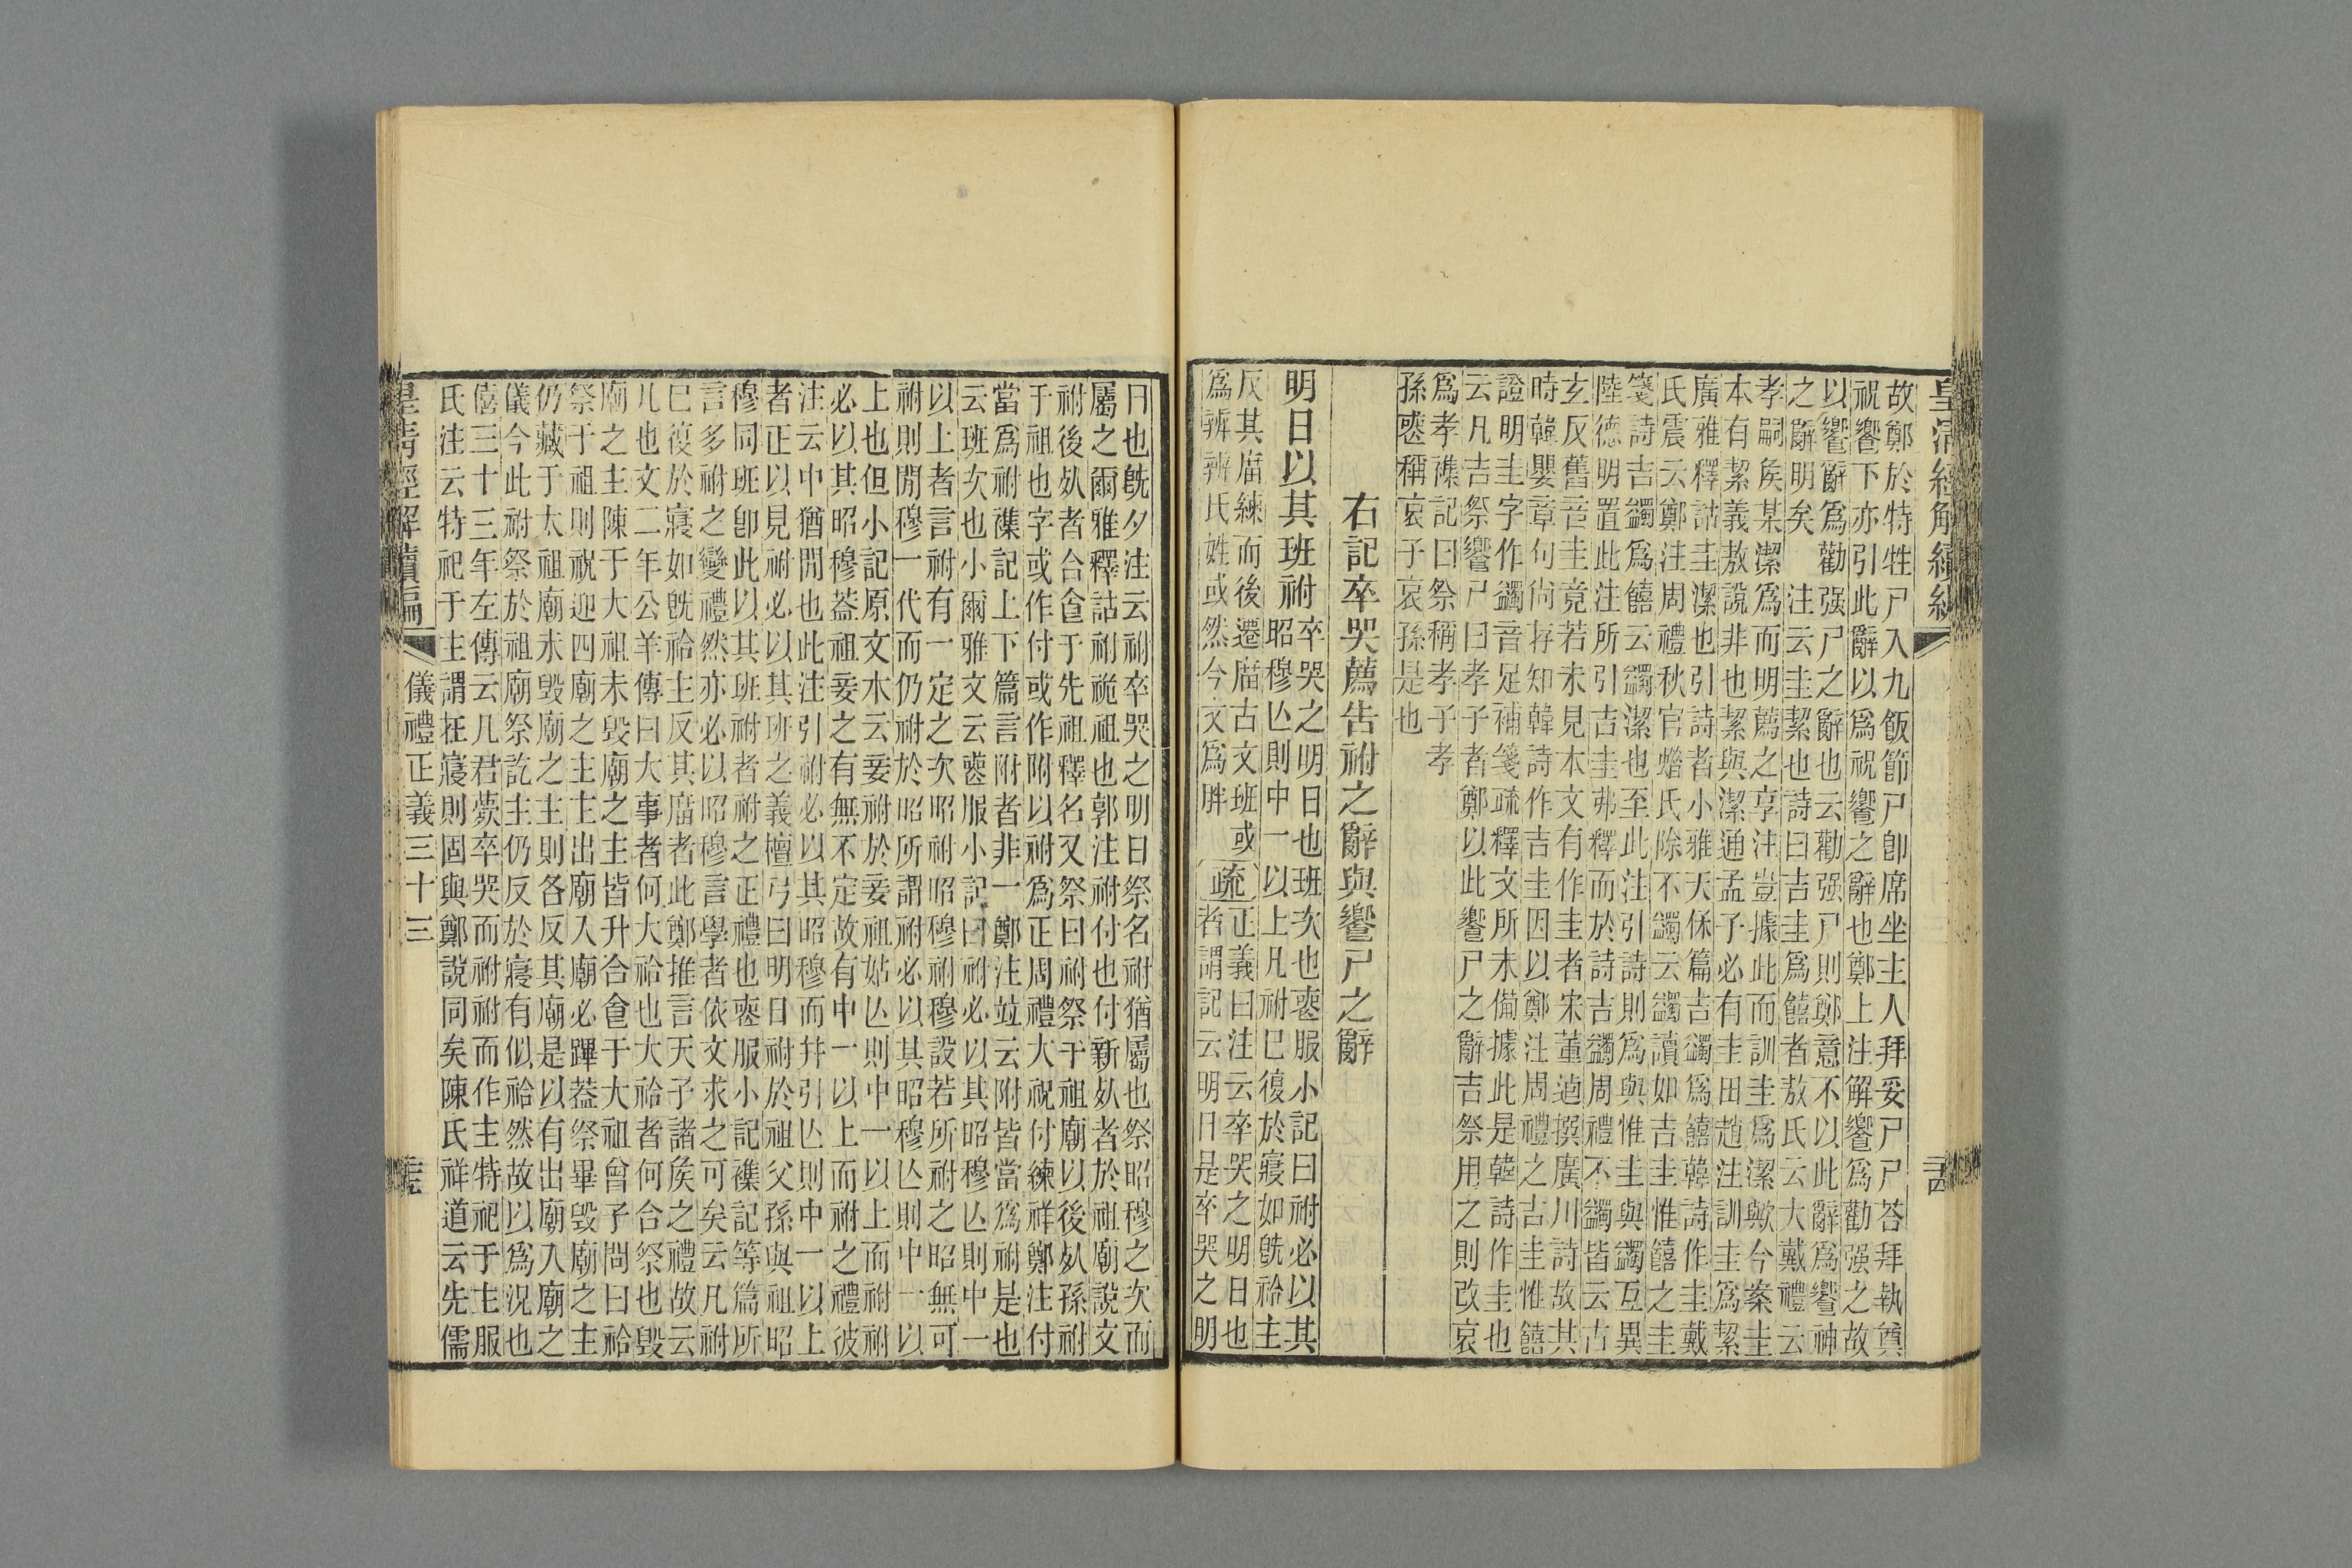 皇清經解續編
故鄭於特牲尸入九飯節尸卽席坐主人拜妥尸尸荅拜執奠
祝饗下亦引此辭以爲祝饗之辭也鄭上注解饗爲勸强之故
以饗辭爲勸强尸之辭也云勸强尸則鄭意不以此辭爲饗神
之辭明矣　注云圭絜也詩曰吉圭爲饎者敖氏云大戴禮云
孝嗣矦某潔爲而明薦之享注豈據此而訓圭爲潔歟今案圭
本有絜義敖說非也絜與潔通孟子必有圭田趙注訓圭爲絜
廣雅釋詁圭潔也引詩者小雅天保篇吉蠲爲饎韓詩作圭戴
氏震云鄭注周禮秋官蜡氏除不蠲云蠲讀如吉圭惟饎之圭
箋詩吉蠲爲饎云蠲潔也至此注引詩則爲與惟圭與蠲互異
陸德明置此注所引吉圭弗釋而於詩吉蠲周禮不蠲皆云古
玄反舊音圭竟若未見本文有作圭者宋董逌撰廣川詩故其
時韓嬰章句尙存知韓詩作吉圭因以鄭注周禮之吉圭惟饎
證明圭字作蠲音足補箋疏釋文所未備據此是韓詩作圭也
云凡吉祭饗尸曰孝子者鄭以此饗尸之辭吉祭用之則改哀
爲孝襍記曰祭稱孝子孝
孫喪稱哀子哀孫是也
右記卒哭薦告祔之辭與饗尸之辭
明日以其班祔
卒哭之明日也班次也喪服小記曰祔必以其
昭穆亾則中一以上凡祔已復於寢如旣祫主
反其廟練而後遷廟古文班或
爲辨辨氏姓或然今文爲胖
疏
正義曰注云卒哭之明日也
者謂記云明日是卒哭之明
日也旣夕注云祔卒哭之明日祭名祔猶屬也祭昭穆之次而
屬之爾雅釋詁祔祪祖也郭注祔付也付新死者於祖廟說文
祔後死者合食于先祖釋名又祭曰祔祭于祖廟以後死孫祔
于祖也字或作付或作附以祔爲正周禮大祝付練祥鄭注付
當爲祔襍記上下篇言附者非一鄭注竝云附皆當爲祔是也
云班次也小爾雅文云喪服小記曰祔必以其昭穆亾則中一
以上者言祔有一定之次昭祔昭穆祔穆設若所祔之昭無可
祔則閒穆一代而仍祔於昭所謂祔必以其昭穆亾則中一以
上也但小記原文本云妾祔於妾祖姑亾則中一以上而祔祔
必以其昭穆葢祖妾之有無不定故有中一以上而祔之禮彼
注云中猶閒也此注引祔必以其昭穆而幷引亾則中一以上
者正以見祔必以其班之義檀弓曰明日祔於祖父孫與祖昭
穆同班卽此以其班祔者祔之正禮也喪服小記襍記等篇所
言多祔之變禮然亦必以昭穆言學者依文求之可矣云凡祔
已復於寢如旣祫主反其廟者此鄭推言天子諸矦之禮故云
凡也文二年公羊傳曰大事者何大祫也大祫者何合祭也毀
廟之主陳于大祖未毀廟之主皆升合食于大祖曾子問曰祫
祭于祖則祝迎四廟之主主出廟入廟必蹕葢祭畢毀廟之主
仍藏于太祖廟未毀廟之主則各反其廟是以有出廟入廟之
儀今此祔祭於祖廟祭訖主仍反於寢有似祫然故以爲況也
僖三十三年左傳云凡君薨卒哭而祔祔而作主特祀于主服
氏注云特祀于主謂在寢則固與鄭說同矣陳氏祥道云先儒
皇清經解續編
儀禮正義三十三